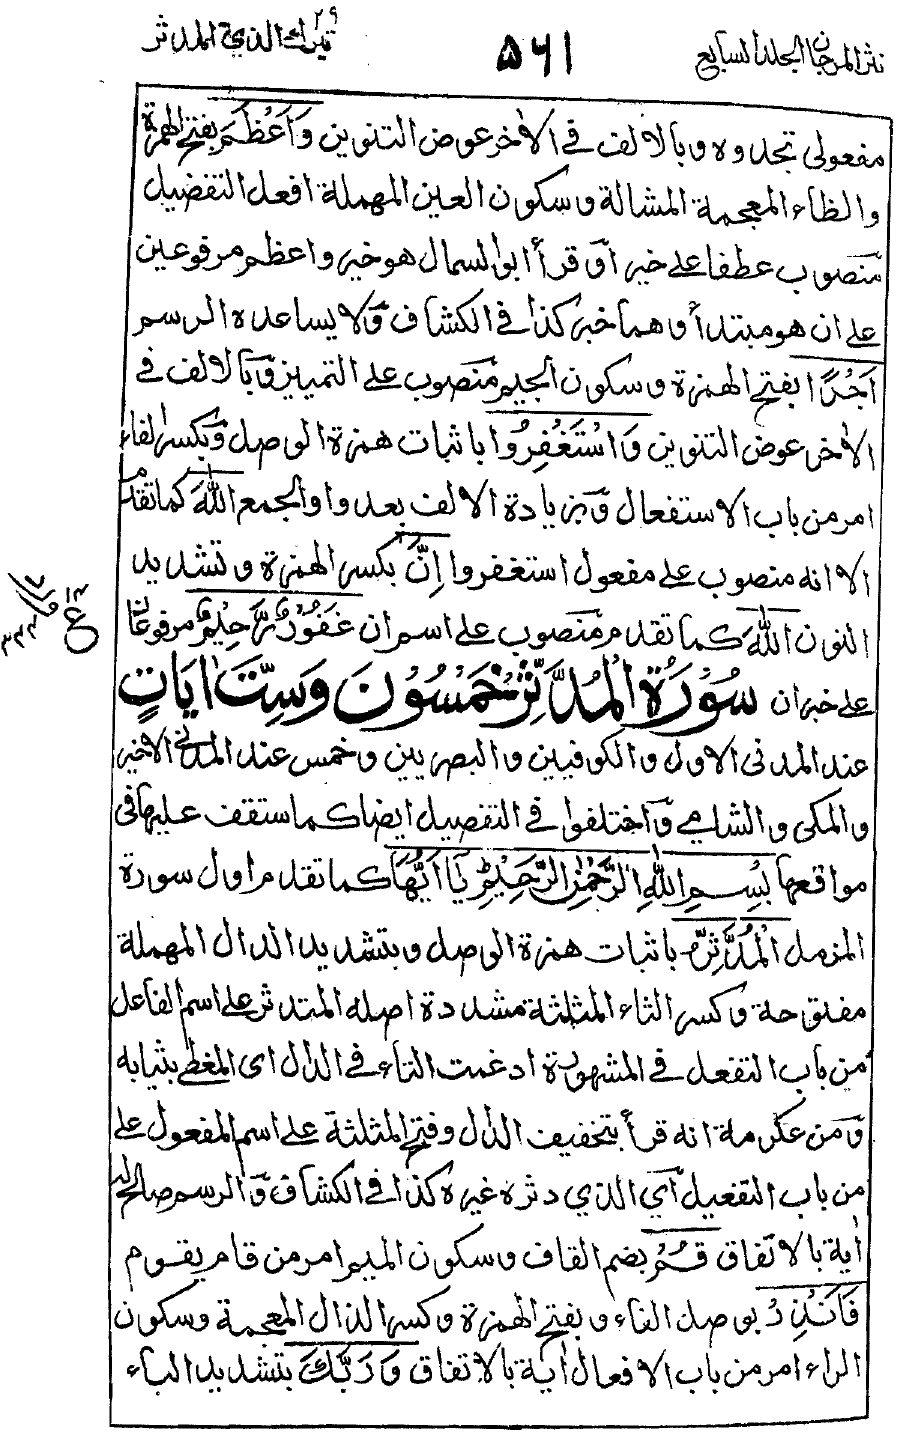 نثر المرجان الجلد السابع
۵۶۱
تبرك الذي ۲۹ المدثر
مفعولى تجدوه وبالالف في الاٰخر عوض التنوين وَاَعْظَمَ بفتح الهمزة
والظاء المعجمة المشالة وسكون العين المهملة افعل التفضيل
منصوب عطفا على خير اوَ قرأ ابو السمال هو خير واعظم مرفوعين
على ان هو مبتدأ وهما خبر كذا في الكشاف وَلا يساعده الرسم
اَجْرًا بفتح الهمزة وسكون الجيم منصوب على التمييز وَبالالف في
الاٰخر عوض التنوين وَاسْتَغْفِرُوا باثبات همزة الوصل وَبكسر الفاء
امر من باب الاستفعال وَبزيادة الالف بعد واو الجمع اللّٰهَ كما تقدم
الا انه منصوب على مفعول استغفروا اِنَّ بكسر الهمزة وتشديد
النون اللّٰهَ كما تقدم منصوب على اسم ان غَفُوْرٌ رَّحِيْمٌ مرفوعان
على خبر ان سُوْرَةُ الْمُدَّثِّرِ خَمْسُوْنَ وَسِتَّ اٰيَاتٍ
عند المدنى الاول والكوفيين والبصريين وخمس عند المدنى الاخير
والمكى والشامي وَاختلفوا في التفصيل ايضا كما ستقف عليها فى
مواقعها بِسْمِ اللّٰهِ الرَّحْمٰنِ الرَّحِيْمِ يَا اَيُّهَا كما تقدم اول سورة
المزمل الْمُدَّثِّرُ باثبات همزة الوصل وبتشديد الدال المهملة
مفتوحة وكسر الثاء المثلثة مشددة اصله المتدثر على اسم الفاعل
من باب التفعل في المشهورة ادغمت التاء في الدال اى المغطي بثيابه
وَعن عكرمة انه قرأ بتخفيف الدال وفتح المثلثة على اسم المفعول على
من باب التفعيل اَي الذي دثره غيره كذا في الكشاف وَالرسم صالح له
اٰية بالاتفاق قُمْ بضم القاف وسكون الميم امر من قام يقوم
فَاَنْذِرْ بوصل الفاء وبفتح الهمزة وكسر الذال المعجمة وسكون
الراء امر من باب الافعال اٰية بالاتفاق وَرَبَّكَ بتشديد الباء